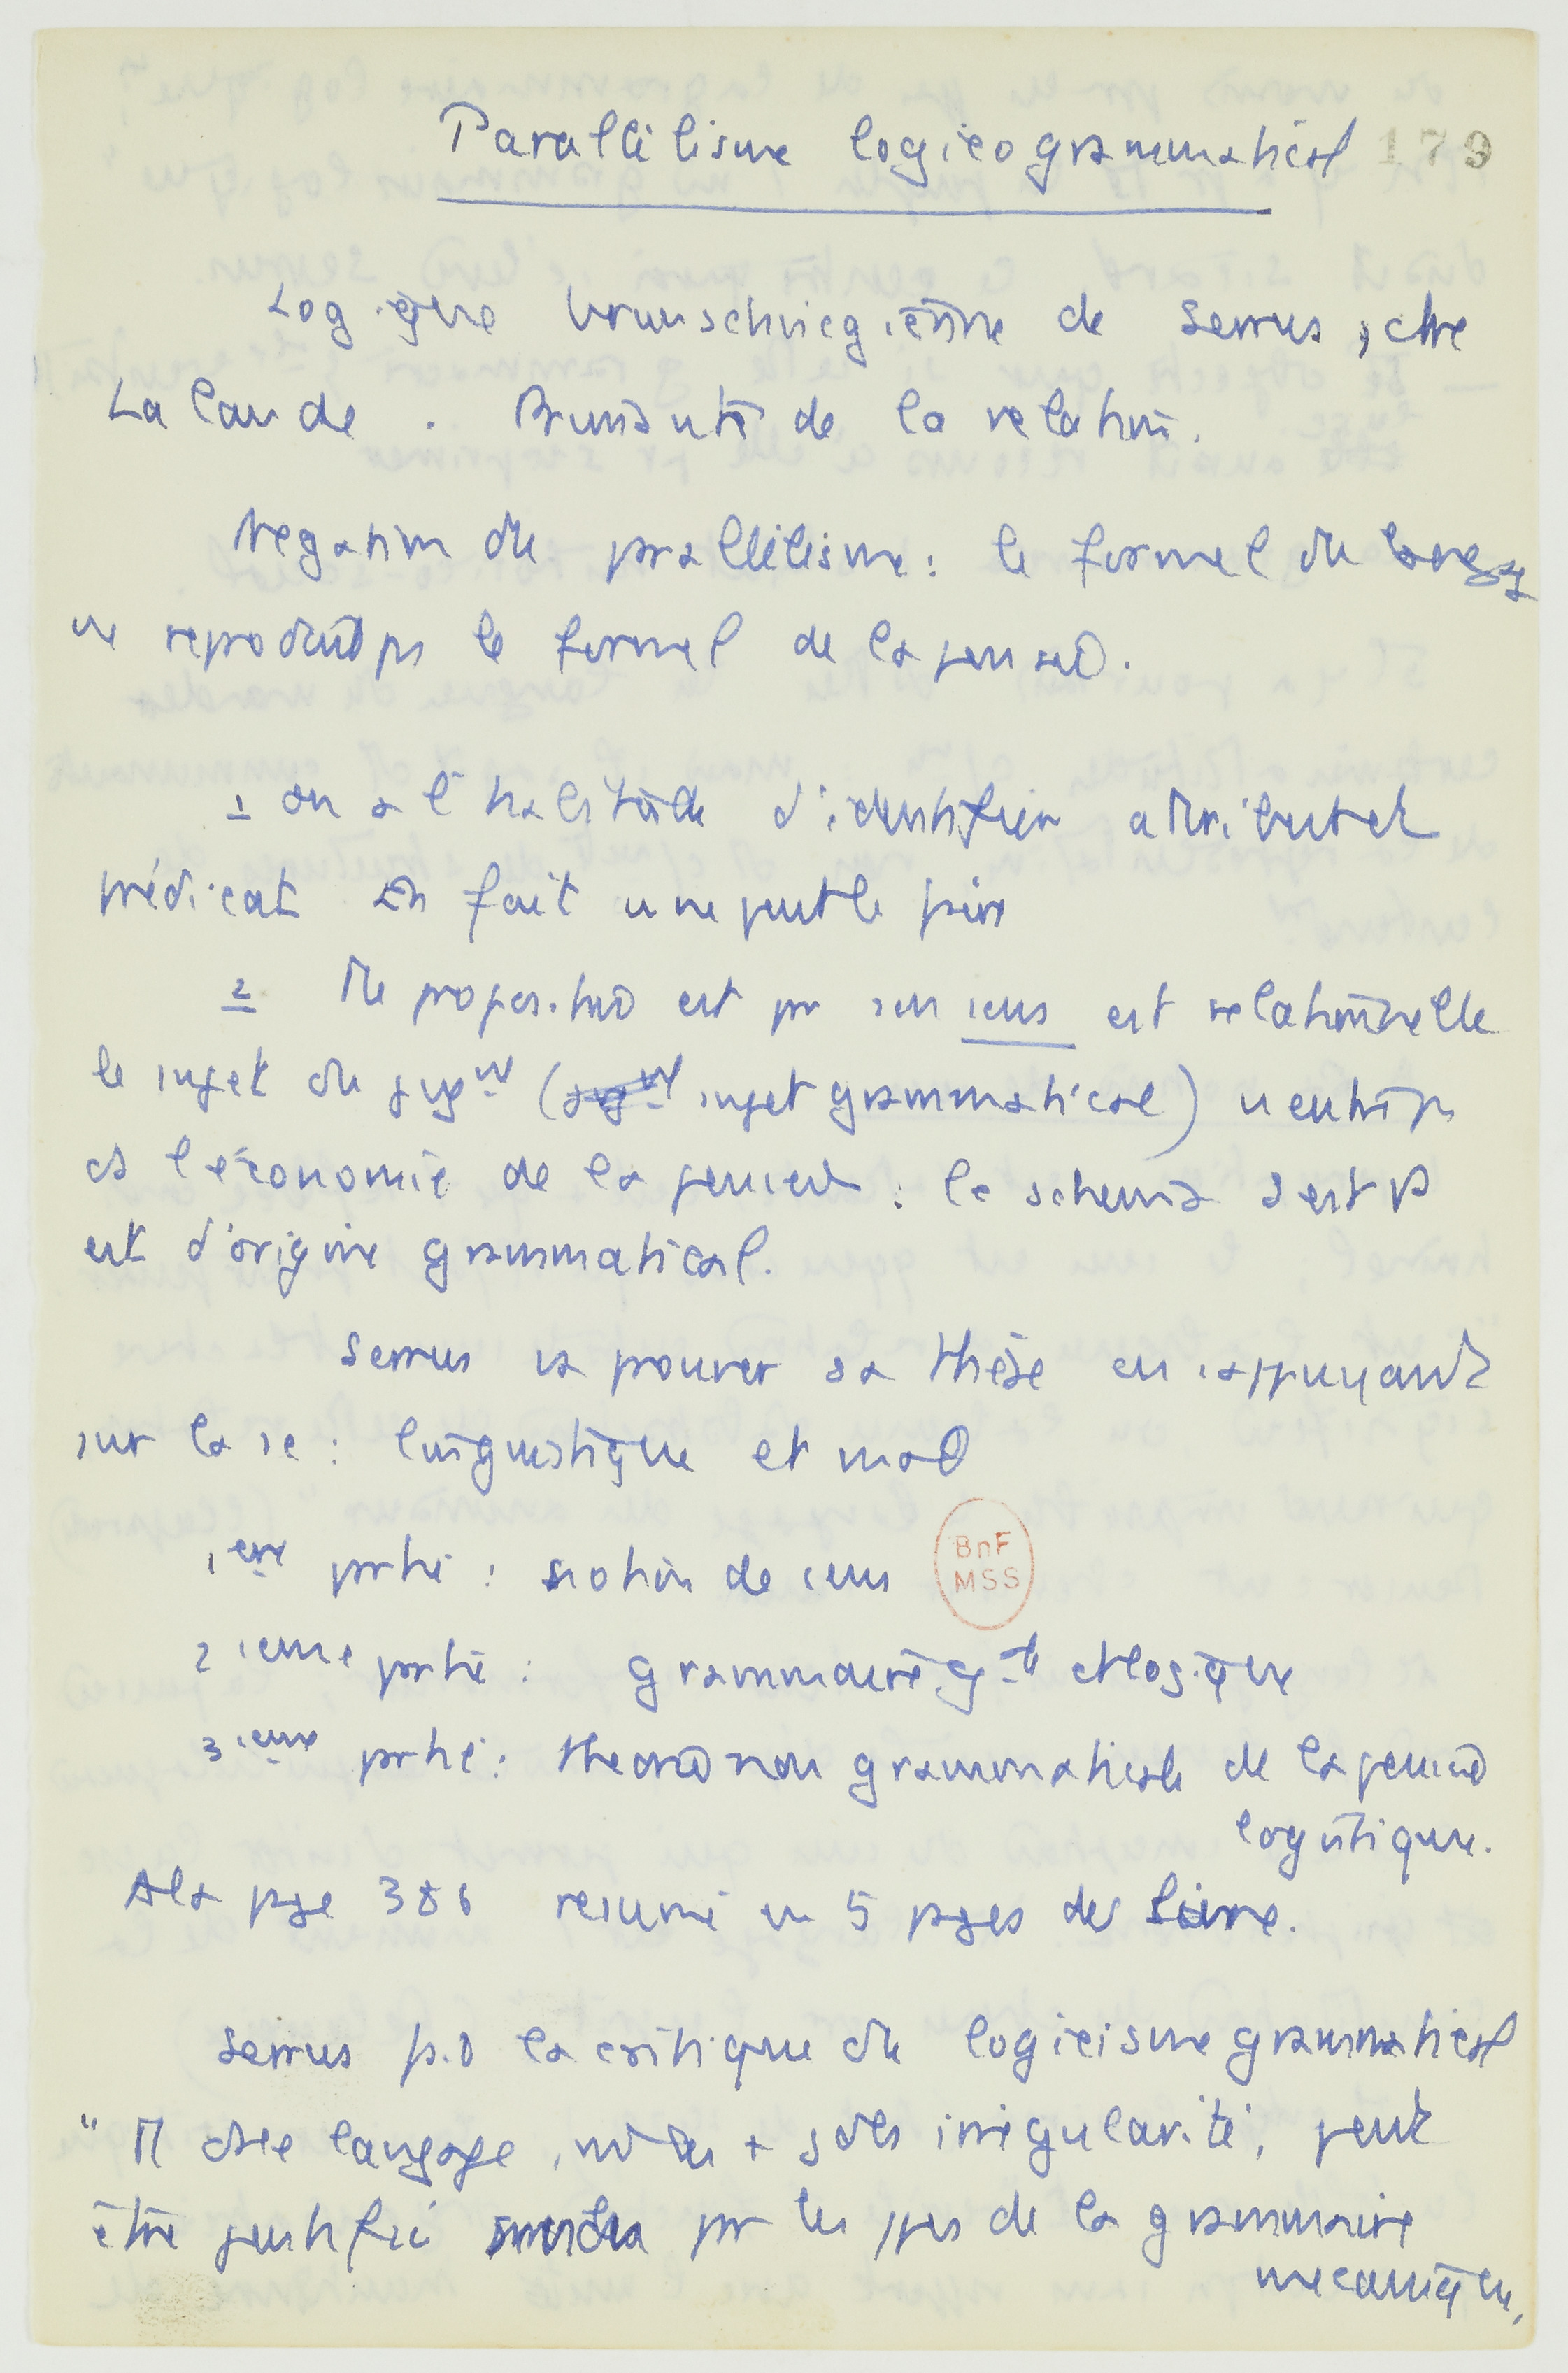 Parallélisme logicogrammatical 179
Logique brunschvicgienne de Serrus, ctre
Lalande. Primauté de la relation.
Negation du prallélisme : le formel du langage
ne reproduit ps le formel de la pensée.
1 on a l'habitude d'identifier attribut et
prédicat on fait une
2 tte proposition est pr son sens est relationnelle
le sujet du jugt (sujet grammatical) n'entre ps
ds l'économie de la pensée : le schema S est P
est d'origine grammatical.
Serrus va prouver sa thèse en s'appuyant
sur la sc : linguistique et
1ere prtie : notion de sens
2ieme prtie : grammaire gle et logique
3ieme prtie : theorie non grammaticale de la pensée
logistique.
A la pge 386 resumé en 5 pges du livre.
Serrus la critique du logicisme grammatical
" ds le langage, irrégularité, peut
être justifié pr les ppes de la grammaire
mecanique,
BnF
MSS